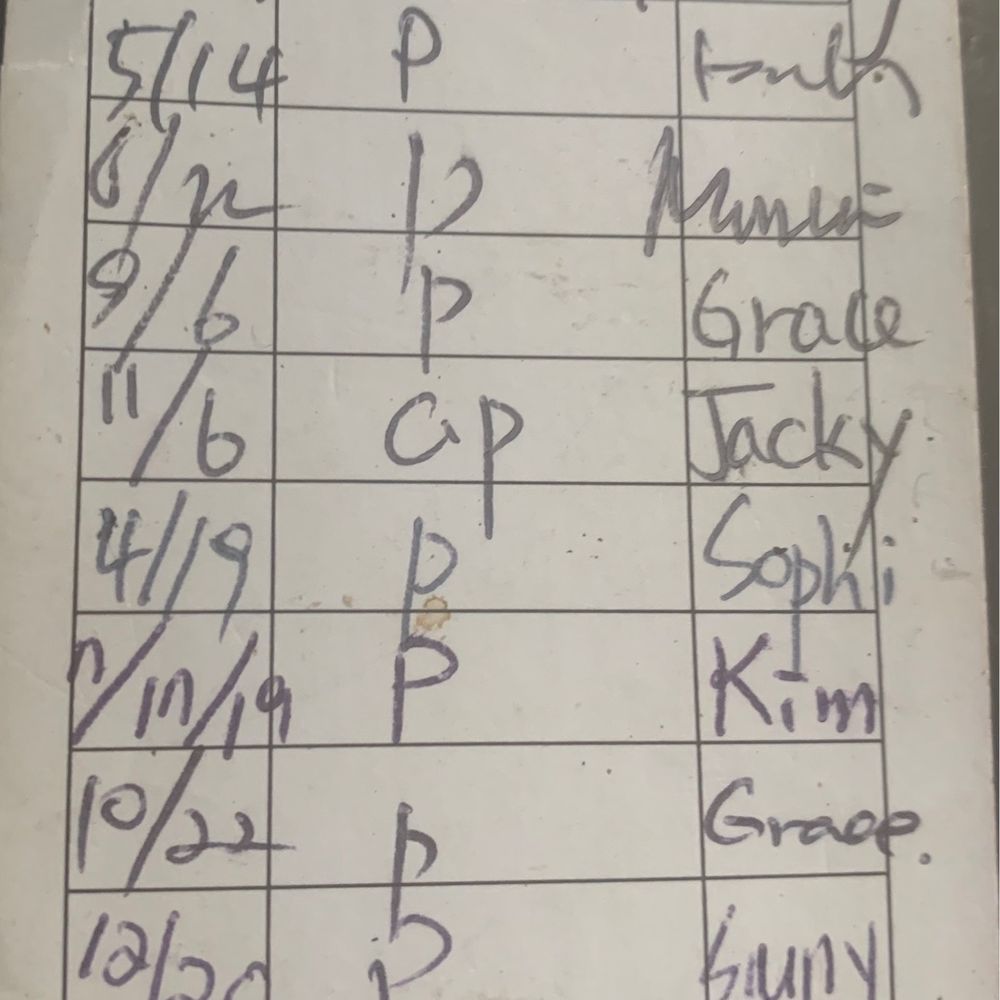 5/14 P
6/22 P
9/6 P Grace
11/6 ap Jacky
4/19 P Sophi
7/17/19 P Kim
10/22 P Grace.
12/20 P Suny